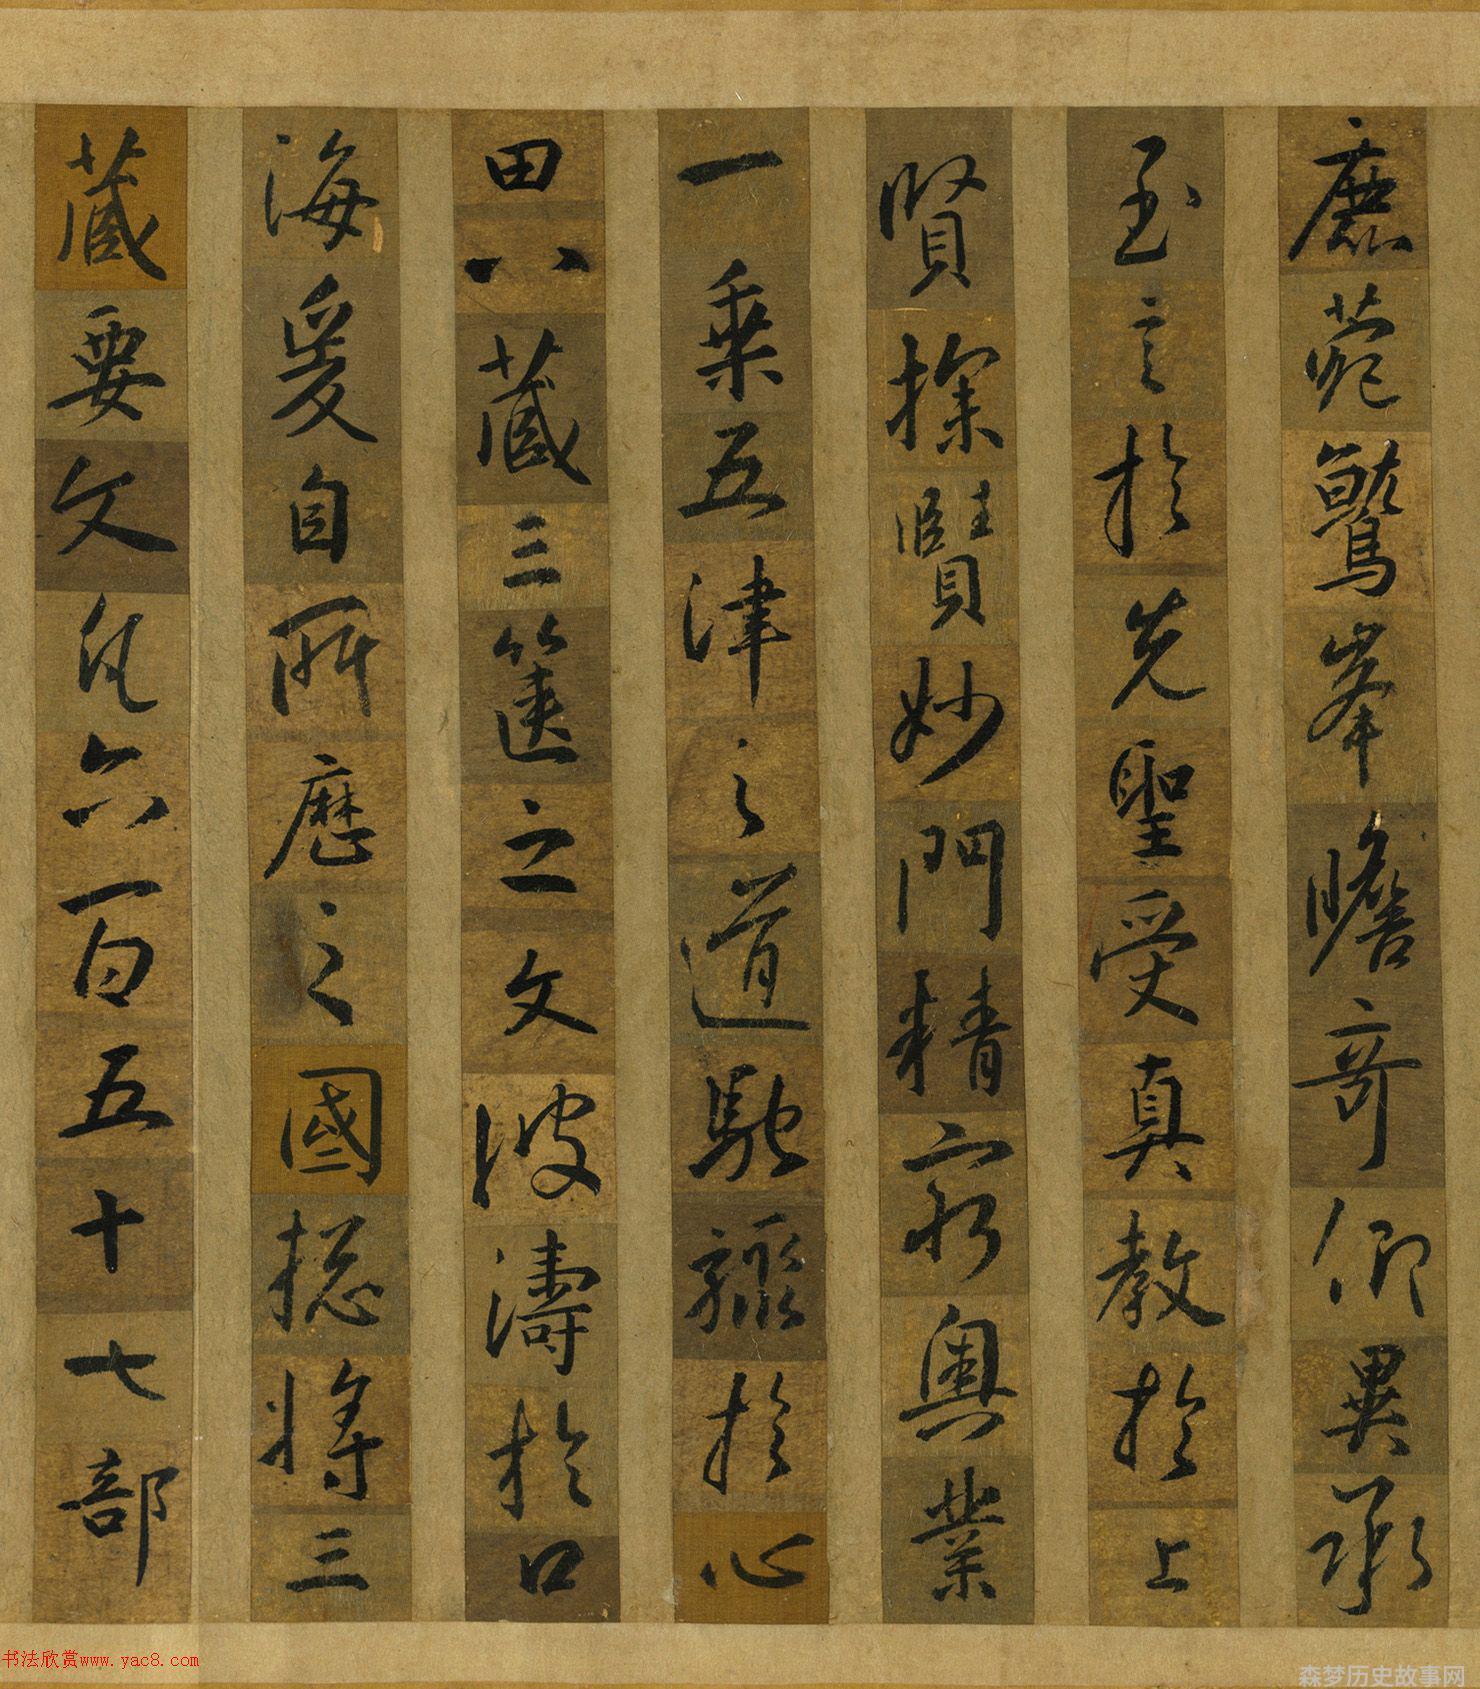 鹿菀鷲峯瞻奇仰異承
至言於先聖受真教於上
賢探賾妙門精窮奧業
一乘五津之道馳驟於心
田八藏三篋之文波濤於口
海爰自所歷之國揔將三
藏要文凡六百五十七部
书法欣赏www.yac8.com
森梦历史故事网